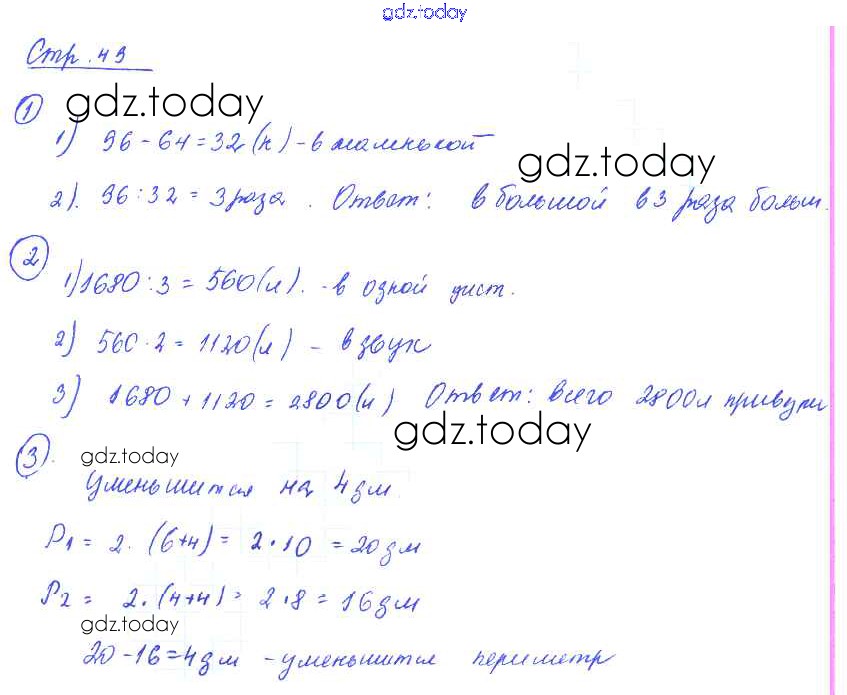 gdz.today
Стр. 49
1
gdz.today
1) 96-64=32(к)-в маленькой
gdz.today
2). 96:32 = 3 раза. Ответ: в большой в 3 раза больш.
2
1) 1680:3 = 560(л). -в одной цист.
2) 560·2 = 1120(л) -
3) 1680+1120=2800(л) Ответ: всего 2800л
gdz.today
3).
gdz.today
Уменьшится на 4дм.
P1 = 2·(6+4) = 2·10 = 20дм
P2 = 2·(4+4) = 2·8 = 16дм
gdz.today
20-16=4дм -уменьшится периметр